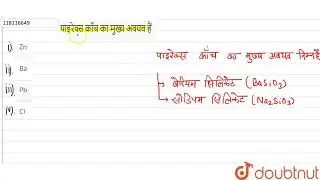 118116649
पाइरेक्स काँच का मुख्य अवयव है
(i). Zn
(ii). Ba
(iii). Pb
(iv). Cl
पाइरेक्स काँच का मुख्य अवयव निम्न हैं
→ बेरियम सिलिकेट (BaSiO3)
→ सोडियम सिलिकेट (Na2SiO3)
doubtnut